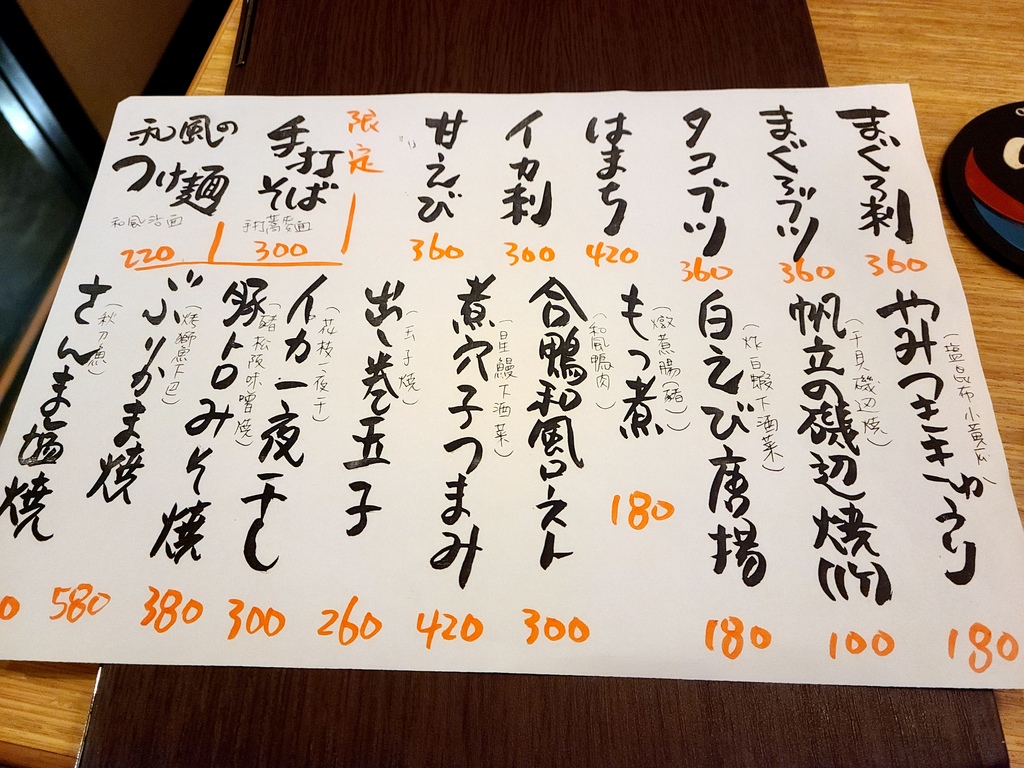 まぐろ刺
360
まぐろブツ
360
タコブツ
360
はまち
420
イカ刺
300
甘えび
360
限定
手打そば
手打蕎麦麺
300
和風の
つけ麺
和風沾面
220
やみつききゅうり
(塩昆布小黄瓜)
180
帆立の磯辺焼(1ケ)
(干貝磯辺焼)
100
白えび唐揚
(炸白蝦下酒菜)
180
もつ煮
(燉煮腸(豬))
180
合鴨和風ロースト
(和風鴨肉)
300
煮穴子つまみ
(星鰻下酒菜)
420
出し巻玉子
(玉子焼)
260
イカ一夜干し
(花枝一夜干)
300
豚トロみそ焼
(豬松阪味噌焼)
380
ぶりかま焼
(烤鰤魚下巴)
580
さんま塩焼
(秋刀魚)
0